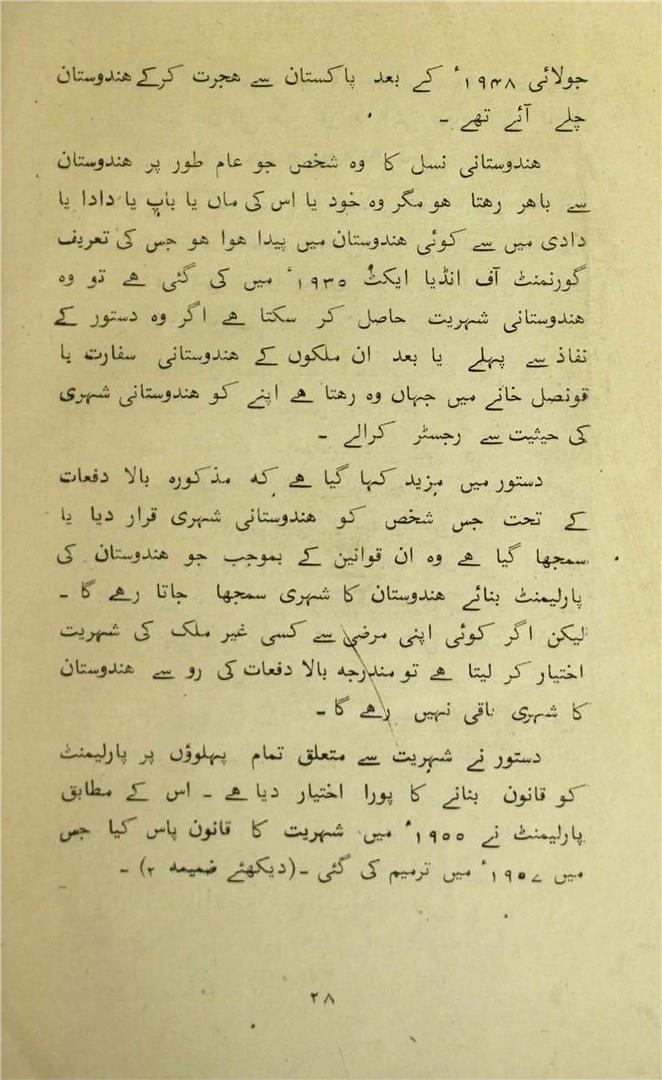 جولائی ۱۹۴۸ء کے بعد پاکستان سے ہجرت کرکے ہندوستان
چلے آئے تھے ۔
ہندوستانی نسل کا وہ شخص جو عام طور پر ہندوستان
سے باہر رہتا ہو مگر وہ خود یا اس کی ماں یا باپ یا دادا یا
دادی میں سے کوئی ہندوستان میں پیدا ہوا ہو جس کی تعریف
گورنمنٹ آف انڈیا ایکٹ ۱۹۳۵ء میں کی گئی ہے تو وہ
ہندوستانی شہریت حاصل کر سکتا ہے اگر وہ دستور کے
نفاذ سے پہلے یا بعد ان ملکوں کے ہندوستانی سفارت یا
قونصل خانے میں جہاں وہ رہتا ہے اپنے کو ہندوستانی شہری
کی حیثیت سے رجسٹر کرالے ۔
دستور میں مزید کہا گیا ہے کہ مذکورہ بالا دفعات
کے تحت جس شخص کو ہندوستانی شہری قرار دیا یا
سمجھا گیا ہے وہ ان قوانین کے بموجب جو ہندوستان کی
پارلیمنٹ بنائے ہندوستان کا شہری سمجھا جاتا رہے گا ۔
لیکن اگر کوئی اپنی مرضی سے کسی غیر ملک کی شہریت
اختیار کر لیتا ہے تو مندرجہ بالا دفعات کی رو سے ہندوستان
کا شہری باقی نہیں رہے گا ۔
دستور نے شہریت سے متعلق تمام پہلوؤں پر پارلیمنٹ
کو قانون بنانے کا پورا اختیار دیا ہے ۔ اس کے مطابق
پارلیمنٹ نے ۱۹۵۵ء میں شہریت کا قانون پاس کیا جس
میں ۱۹۵۷ء میں ترمیم کی گئی ۔ (دیکھئے ضمیمہ ۲) ۔
۲۸